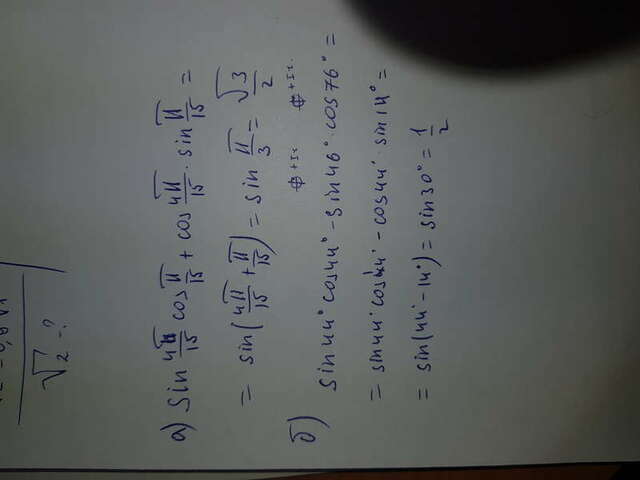 √2 - ?
а) sin 4π/15 cos π/15 + cos 4π/15 · sin π/15 =
= sin(4π/15 + π/15) = sin π/3 = √3/2
б)
sin 44° cos 44° - sin 46° · cos 76° =
= sin 44° cos 14° - cos 44° · sin 14° =
= sin(44° - 14°) = sin 30° = 1/2